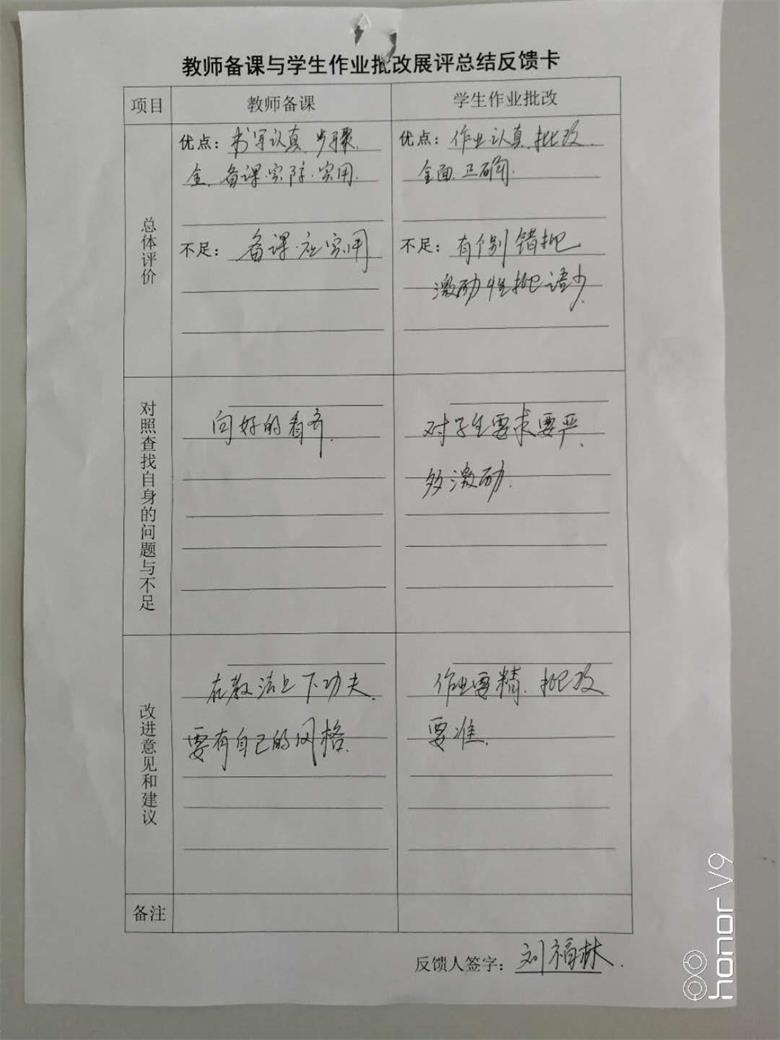 教师备课与学生作业批改展评总结反馈卡
项目
教师备课
学生作业批改
总体评价
优点：书写认真、步骤
全、备课实际、实用.
不足：备课应实用
优点：作业认真、批改
全面、正确.
不足：有个别错批
激励性批语少.
对照查找自身的问题与不足
向好的看齐.
对学生要求要严、
多激励.
改进意见和建议
在教法上下功夫.
要有自己的风格.
作业要精、批改
要准.
备注
反馈人签字：刘福林.
honor V9